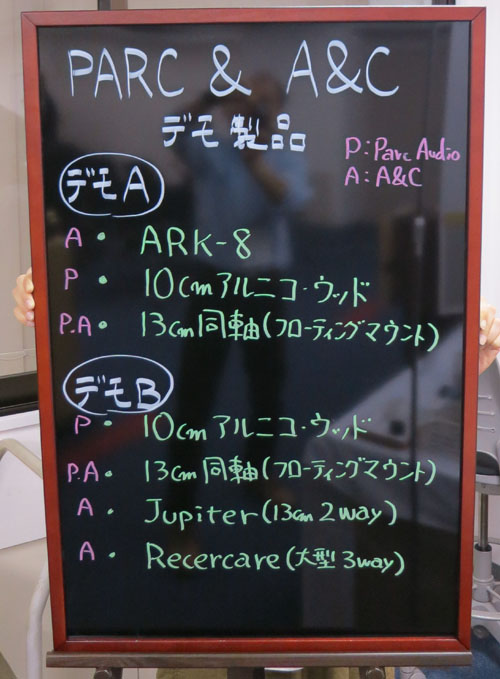 PARC & A&C
デモ製品
P:Parc Audio
A:A&C
デモA
A・ARK-8
P・10cmアルニコ・ウッド
P.A・13cm同軸(フローティングマウント)
デモB
P・10cmアルニコ・ウッド
P.A・13cm同軸(フローティングマウント)
A・Jupiter(13cm 2way)
A・Recercare(大型3way)